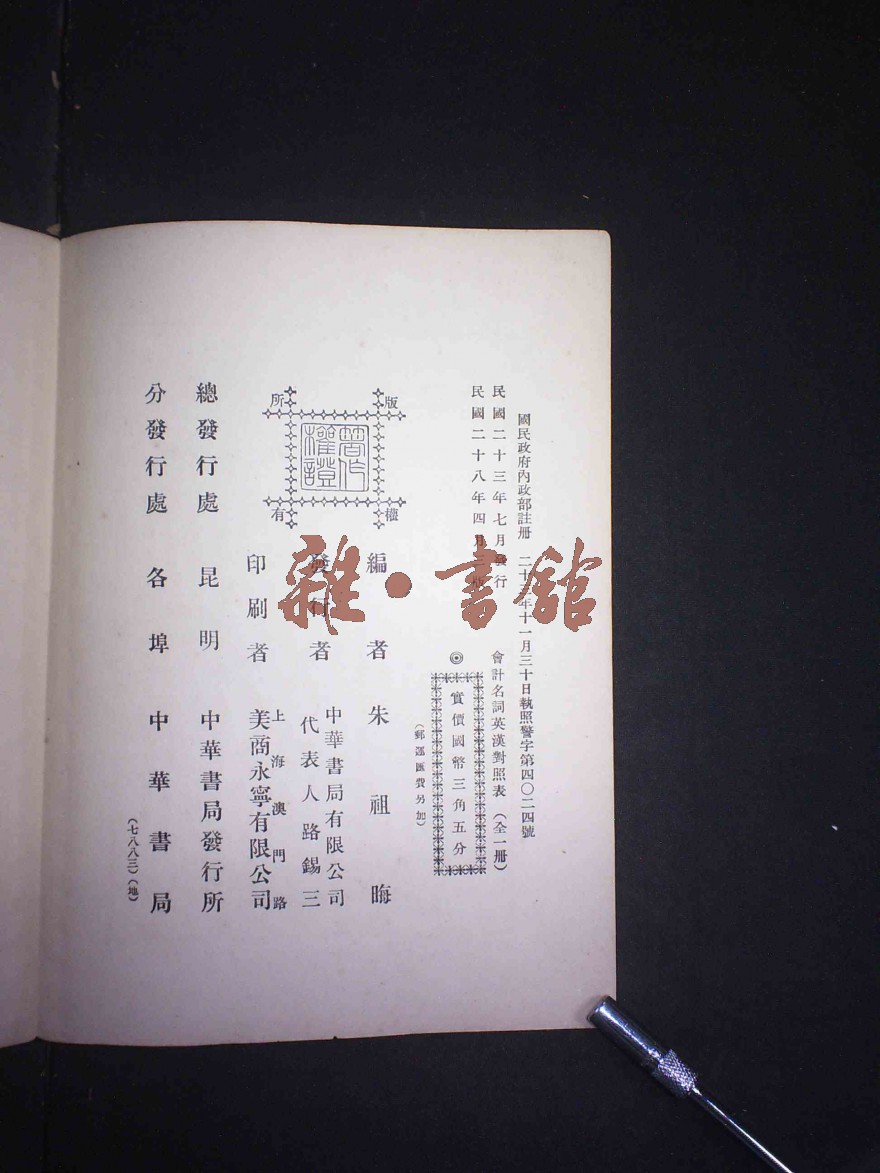 國民政府內政部註册　二十三年十一月三十日執照警字第四〇二四號
民國二十三年七月發行
民國二十八年四月三版
會計名詞英漢對照表（全一册）
◎實價國幣三角五分
（郵運匯費另加）
版權所有
著作權證
編者　朱祖晦
發行者　中華書局有限公司
代表人路錫三
印刷者　上海澳門路
美商永寧有限公司
總發行處　昆明　中華書局發行所
分發行處　各埠　中華書局
（七八八三）（地）
雜·書館